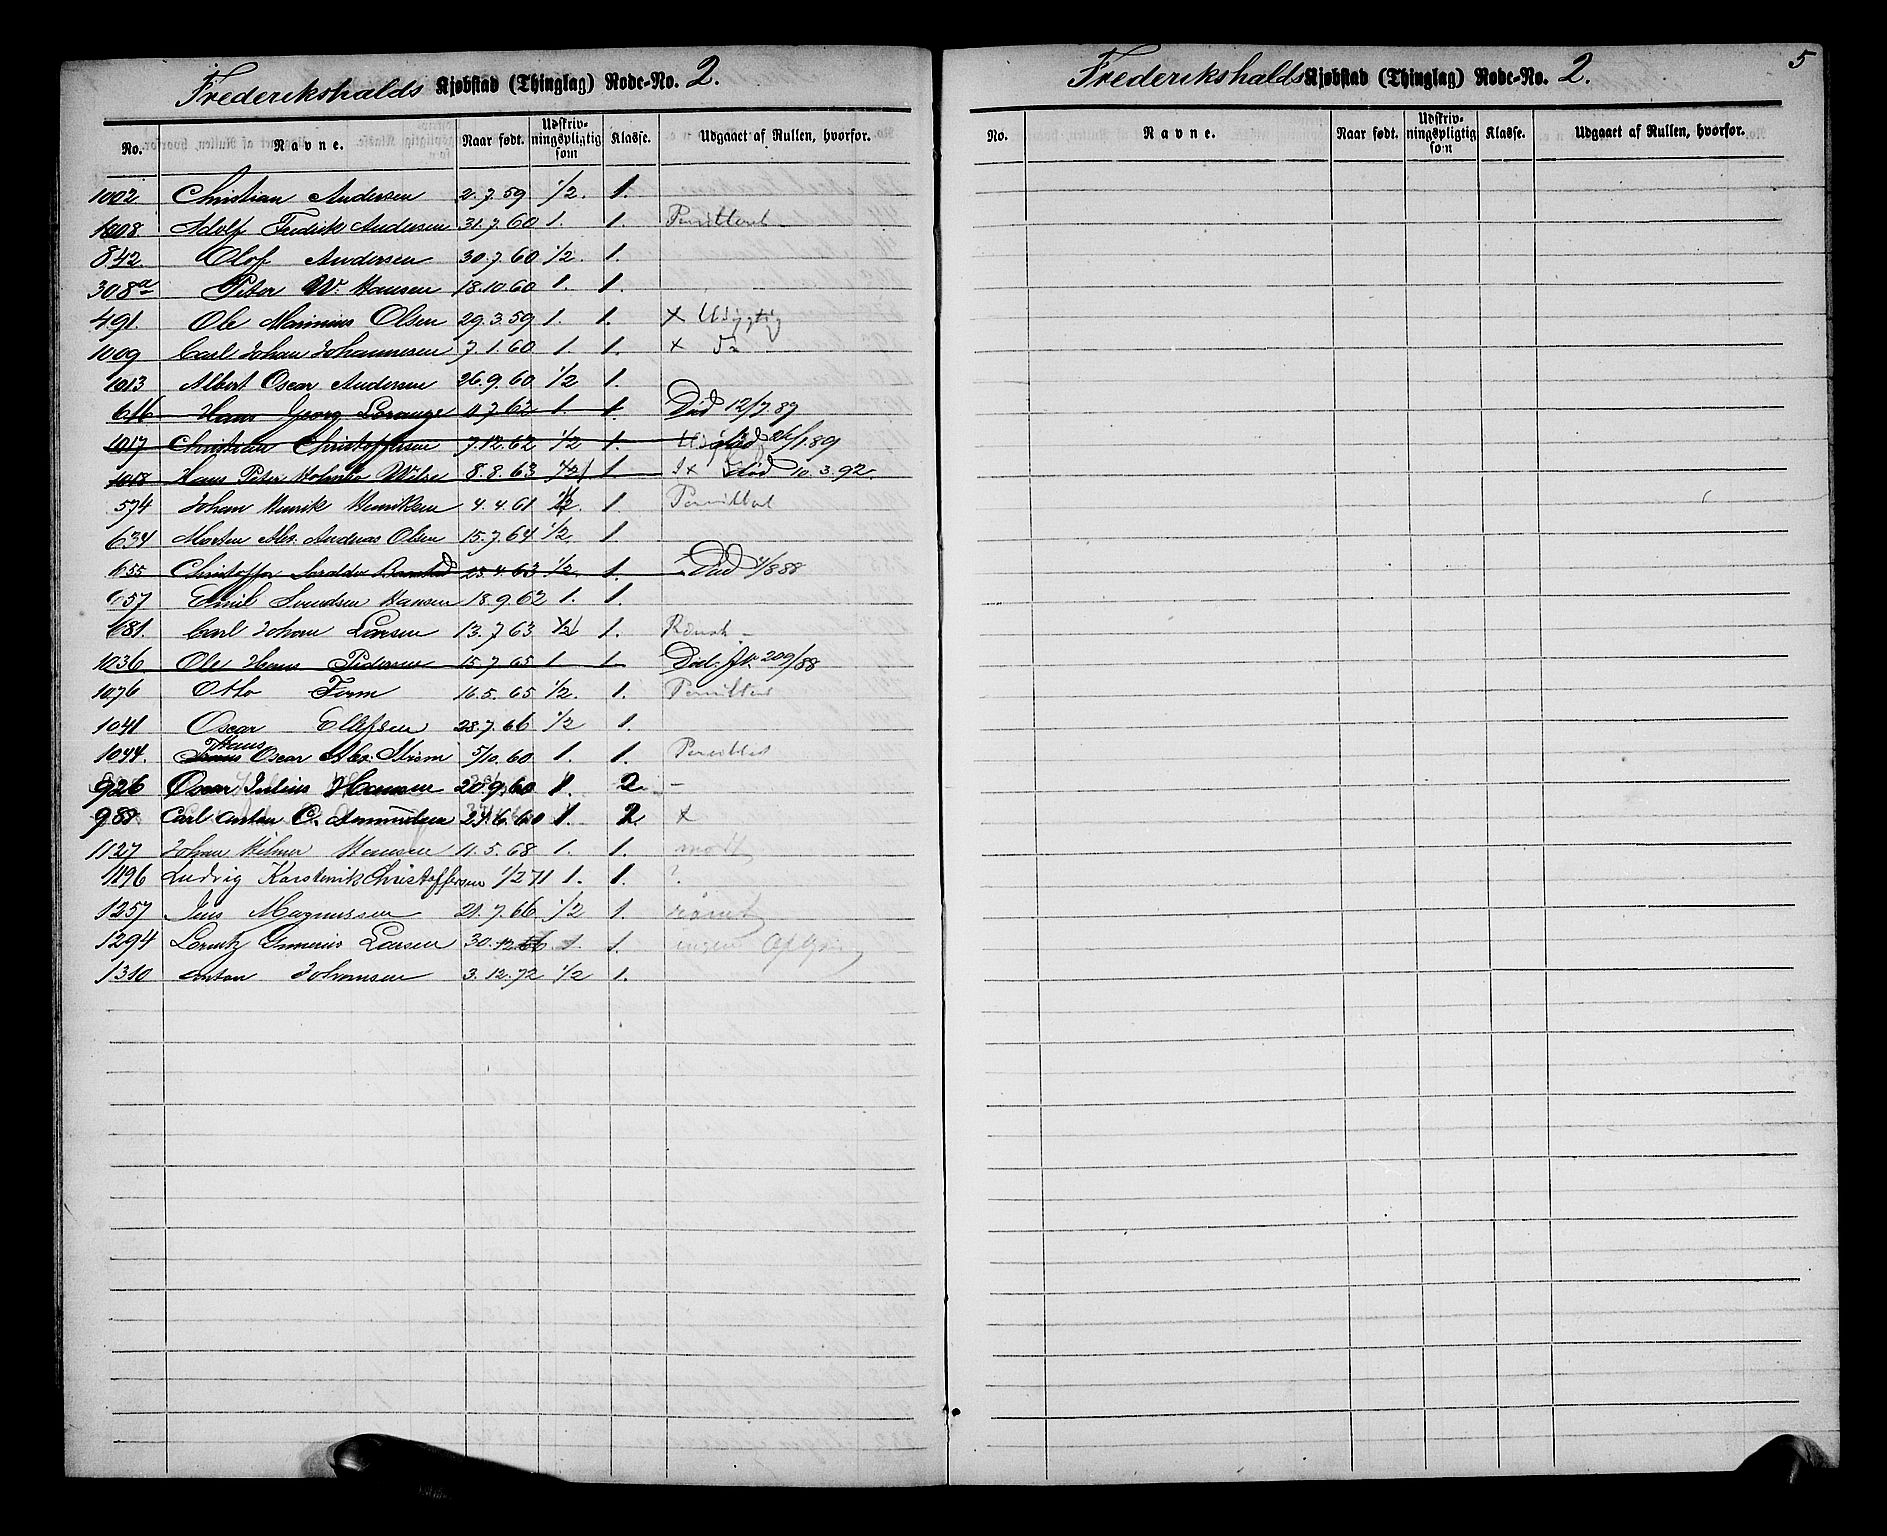 Frederikshalds Kjøbstad (Thinglag) Rode-No. 2.
No. Navne. Naar født. Udskrivningspligtig som Klasse. Udgaaet af Rullen, hvorfor.
1002 Christian Andersen 2.7.59 1/2. 1.
1008 Adolf Fredrik Andersen 31.7.60 1. 1.
842 Olof Andersen 30.7.60 1/2. 1.
308a Peter W. Hansen 18.10.60 1. 1.
491. Ole Marinius Olsen 29.3.59 1. 1. x
1009 Carl Johan Johannesen 7.1.60 1. 1. x
1013 Albert Oscar Andersen 26.9.60 1/2 1.
616 Hans Georg Lorange 1. 1. Død 12/7.89
1017 Christian Christoffersen 7.12.62 1/2 1. død
1018 Hans Peter Wilse 8.8.63 1/2 1 død 10.3.92.
574 Johan Henrik Henriksen 4.4.61 1/2. 1.
634 Morten Alex. Andreas Olsen 15.7.64 1/2 1
655 Christoffer 23.4.63 1/2. 1. Død 4/8 88
657 Emil Svendsen Hansen 18.9.62 1. 1.
681. Carl Johan Larsen 13.7.63 1/2 1.
1036 Ole Hans Pedersen 15.7.65 1. 1. Død
1076 Otto Ferm 16.5.65 1/2. 1.
1041 Oscar Ellefsen 28.7.66 1/2 1.
1044. Hans Oscar Alex. Strøm 5/10.60 1. 1.
926 Oscar Julius Hansen 20.9.60 1. 2. –
988 Carl Anton C. Amundsen 24.6.60 1. 2. x
1127 Johan Hilmer Hansen 11.5.68 1. 1. mødt
1196 Ludvig Karstenik Christoffersen 1/2 71 1. 1. ?
1257 Jens Magnussen 21.7.66 1/2 1. rømt
1294 Lorentz Larsen 30.12.66 1. 1. ingen
1310 Anton Johansen 3.12.72 1/2 1.
Frederikshalds Kjøbstad (Thinglag) Rode-No. 2.
5
No. Navne. Naar født. Udskrivningspligtig som Klasse. Udgaaet af Rullen, hvorfor.